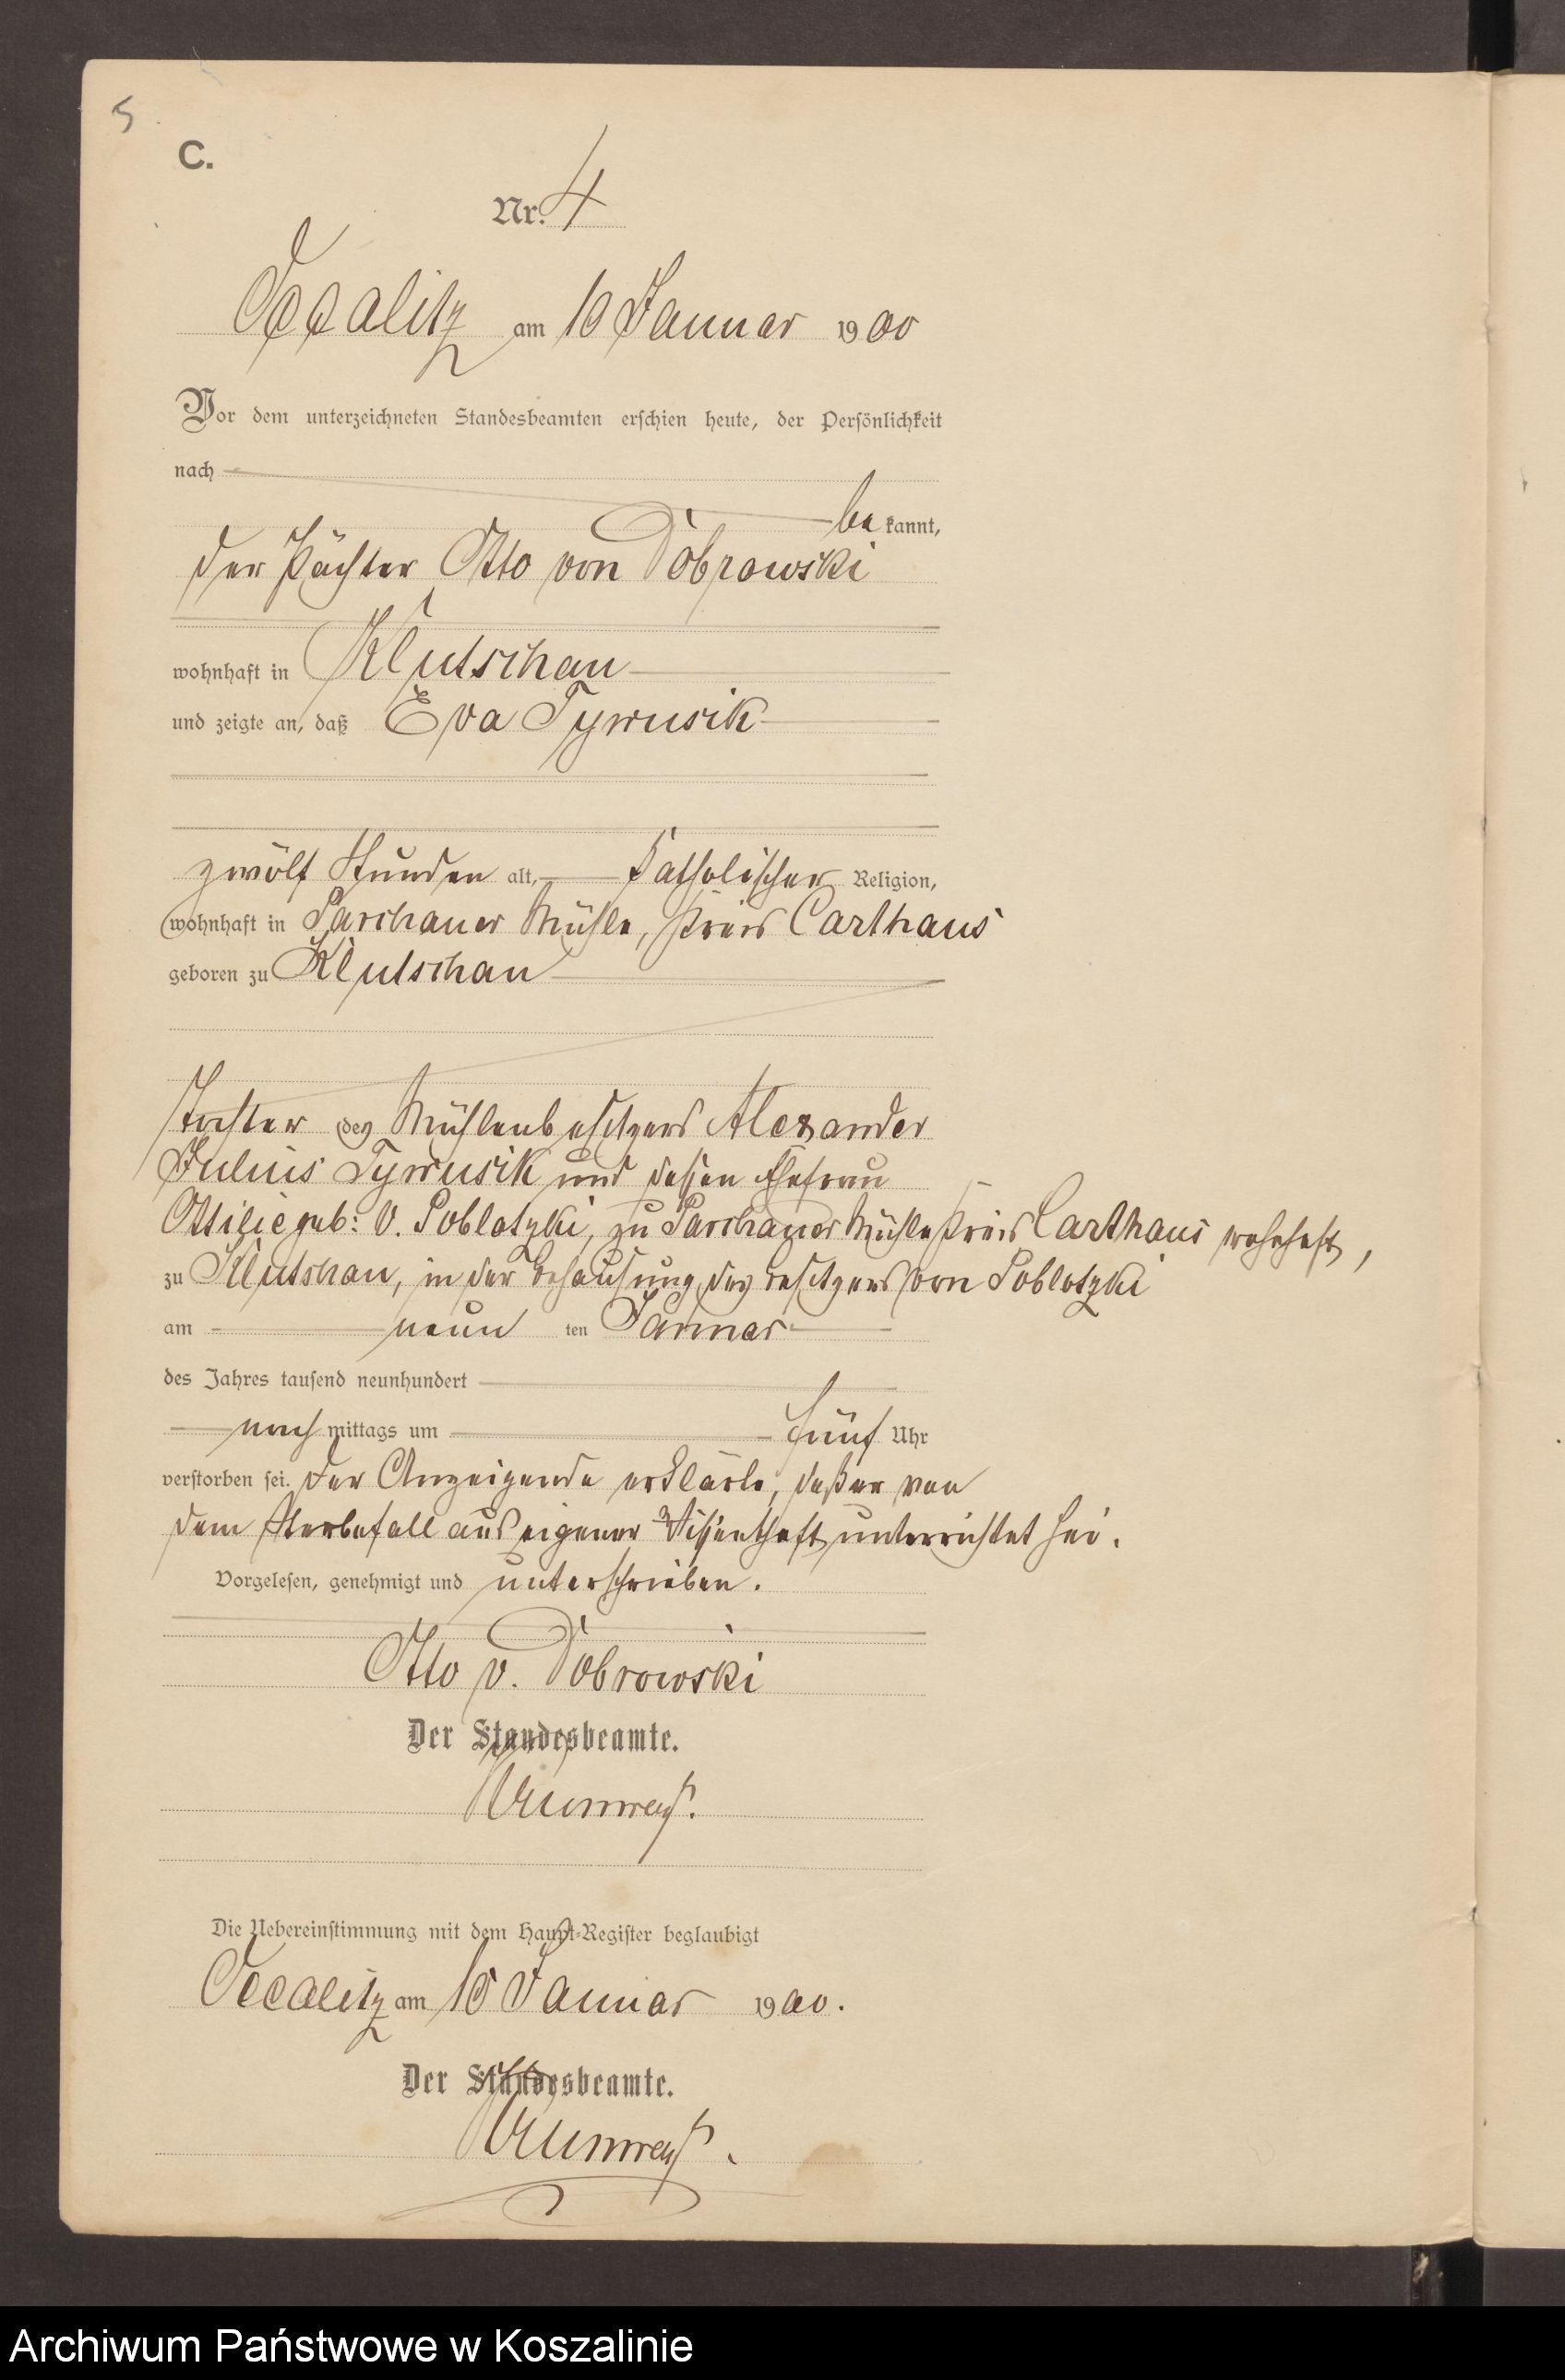 5
C.
Nr. 4
Occalitz am 10 Januar 1900
Vor dem unterzeichneten Standesbeamten erschien heute, der Persönlichkeit
nach
be kannt,
der Pächter Otto von Dobrowski
wohnhaft in Klutschau
und zeigte an, daß Eva Tyrrusik
zwölf Stunden alt, katholischer Religion,
wohnhaft in Parchauer Mühle, Kreis Carthaus
geboren zu Klutschau
Tochter des Mühlenbesitzers Alexander
Julius Tyrrusik und dessen Ehefrau
Ottilie geb: v. Poblotzki, zu Parchauer Mühle Kreis Carthaus wohnhaft,
zu Klutschau, in der Behausung des Besitzers von Poblotzki
am neun ten Januar
des Jahres tausend neunhundert
nach mittags um fünf Uhr
verstorben sei. Der Anzeigende erklärte, daß er von
dem Sterbefall aus eigener Wissenschaft unterrichtet sei.
Vorgelesen, genehmigt und unterschrieben.
Otto v. Dobrowski
Der Standesbeamte.
Die Uebereinstimmung mit dem Haupt-Register beglaubigt
Occalitz am 10 Januar 1900.
Der Standesbeamte.
Archiwum Państwowe w Koszalinie